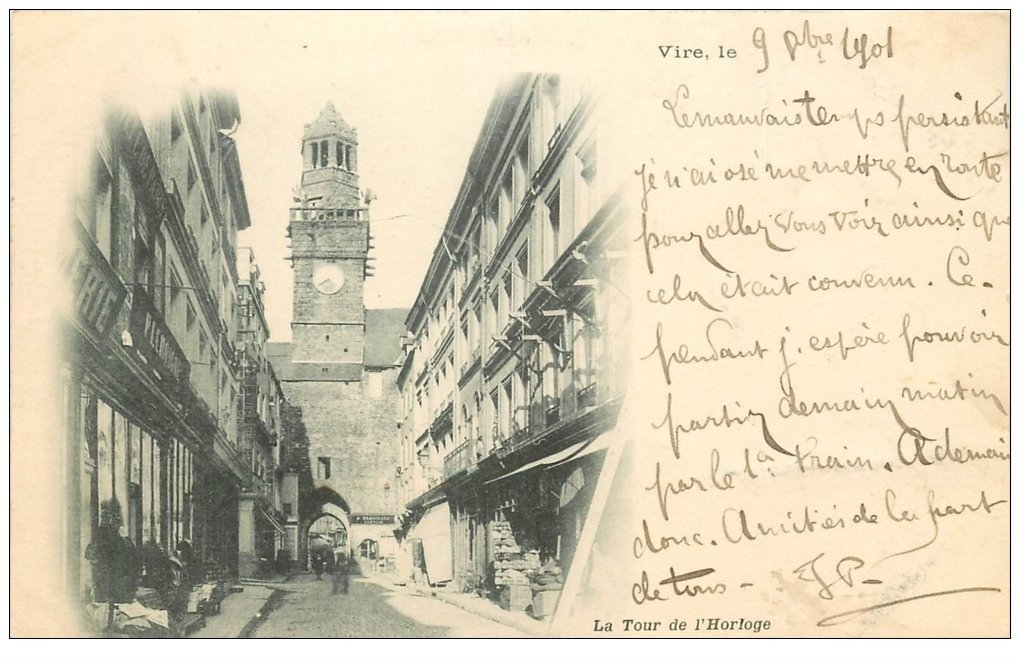 Vire, le 9 bre 1901
Le mauvais temps persistant
je n'ai osé me mettre en route
pour aller vous voir ainsi que
cela était convenu. Ce-
pendant j'espère pouvoir
partir demain matin
par le 1er train. A demain
donc. Amitiés de la part
de tous -
La Tour de l'Horloge